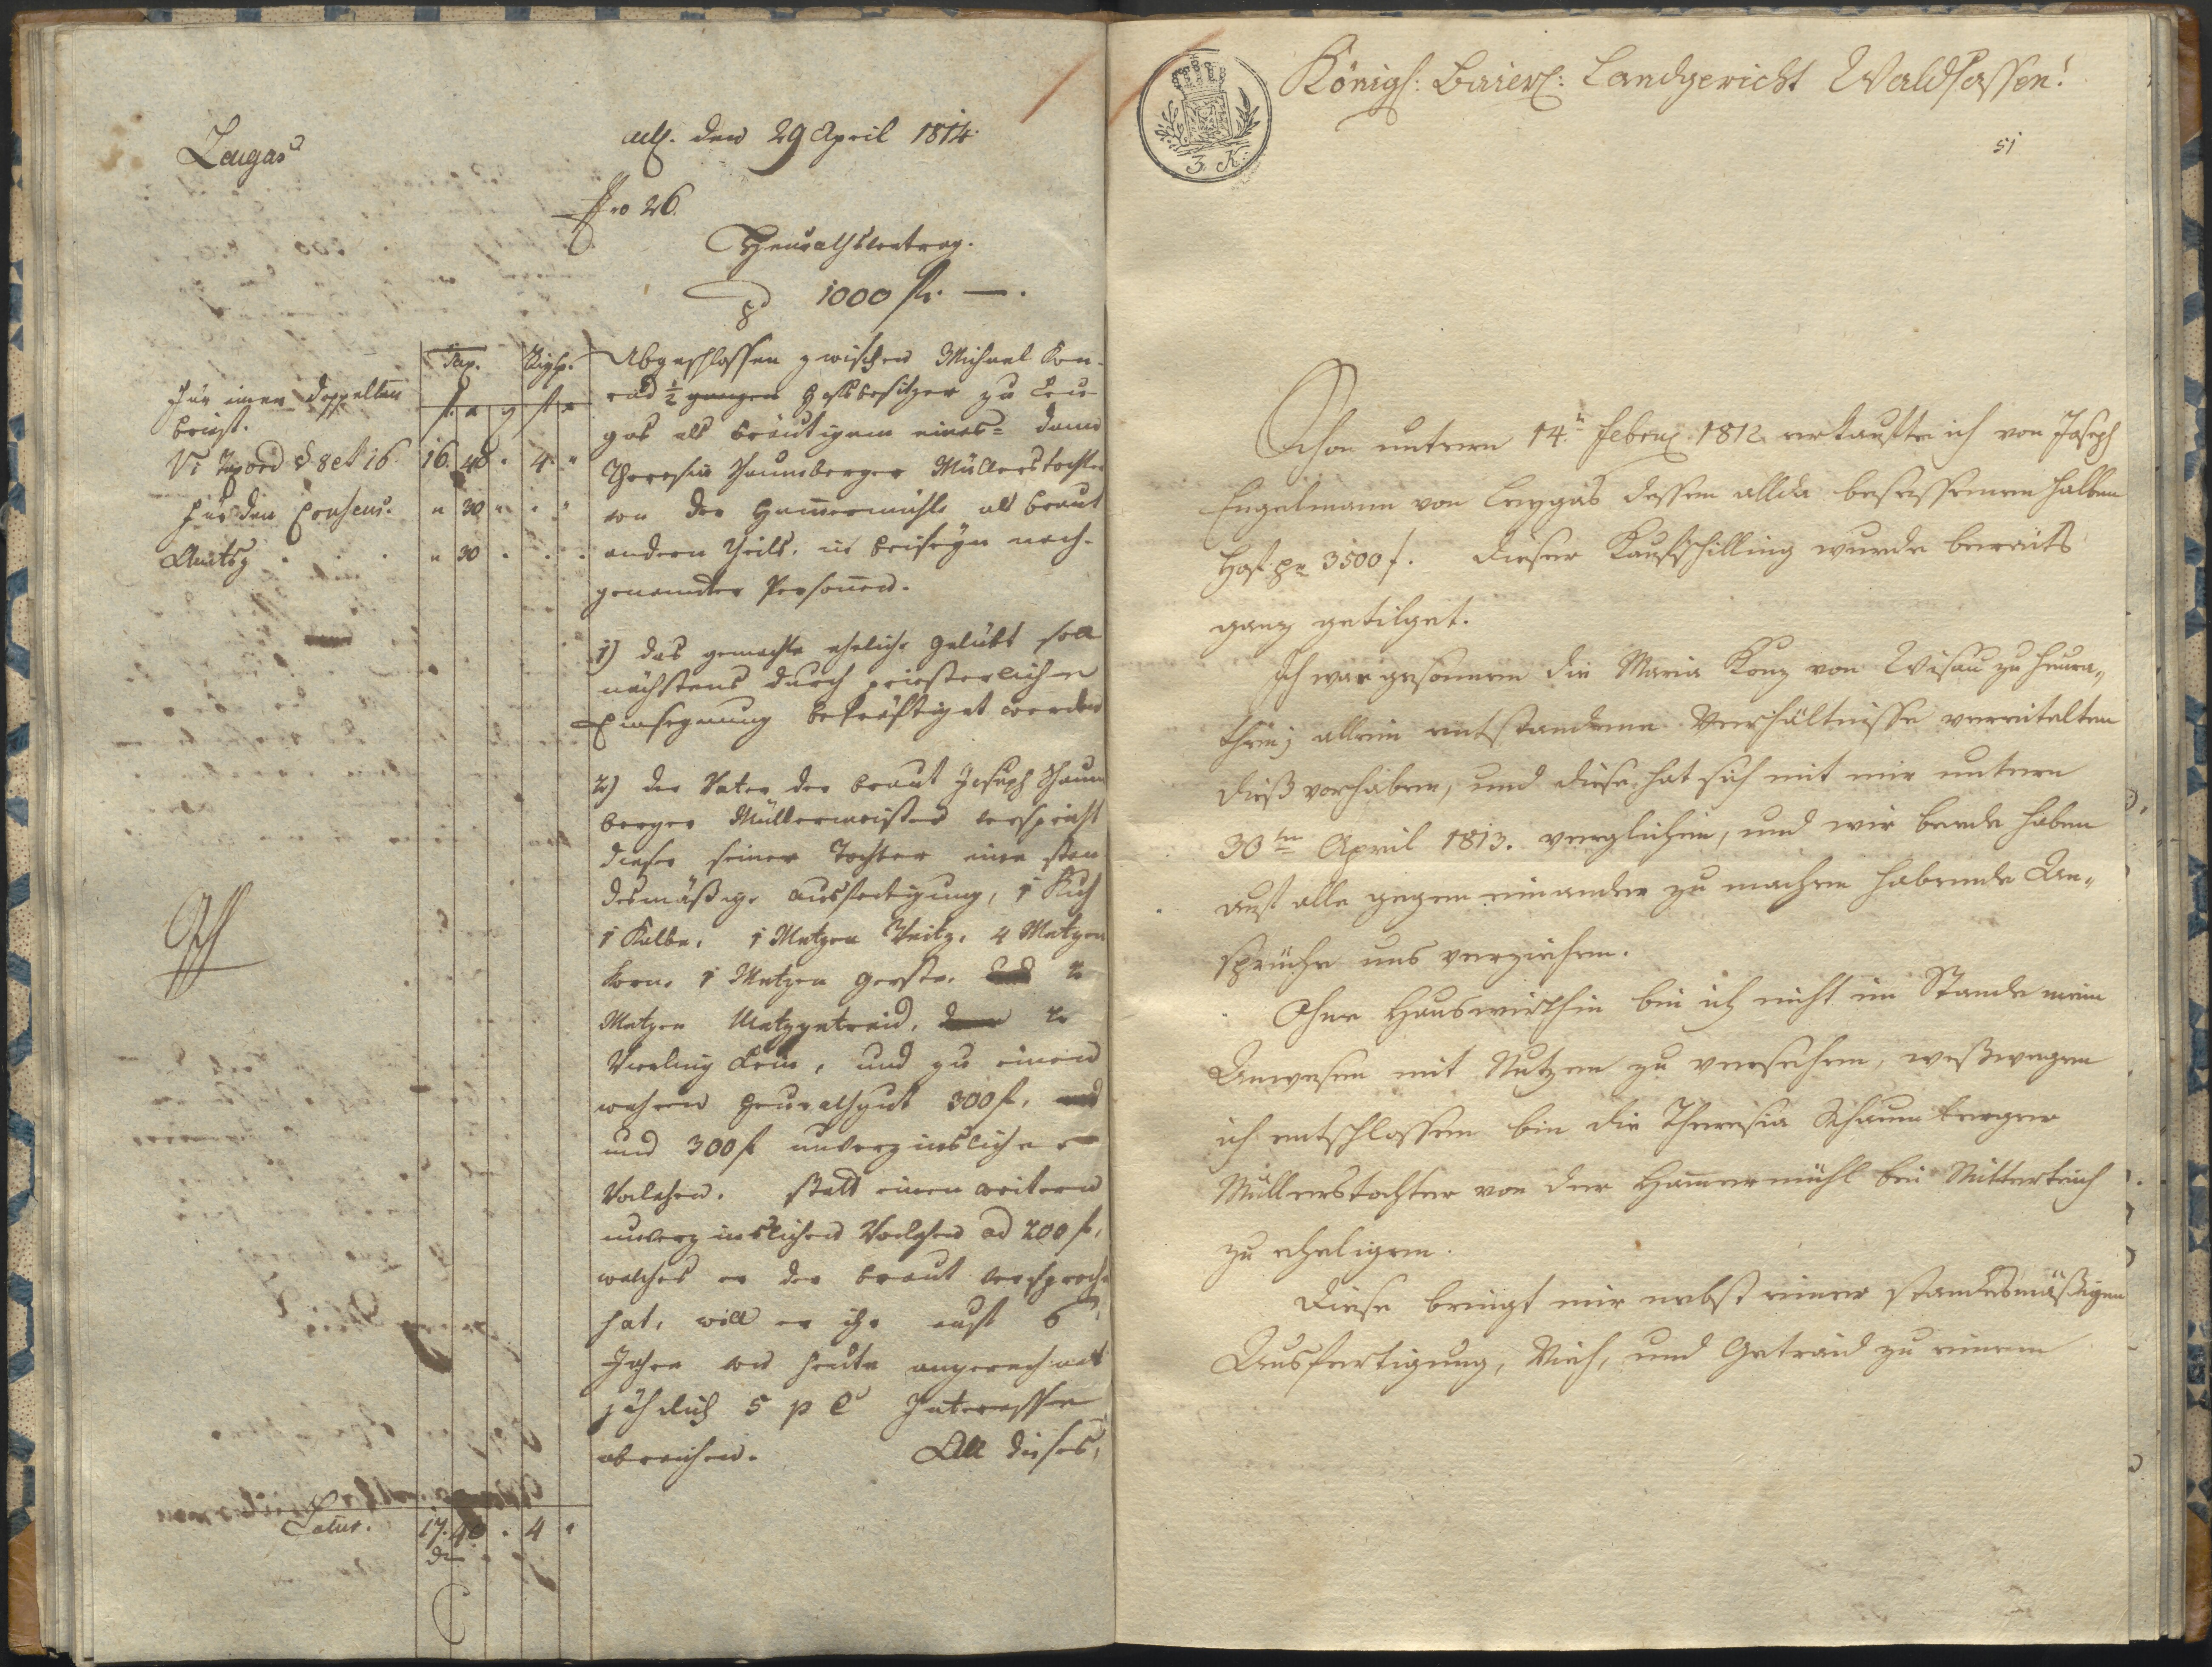 Leugas
act. den 29 April 1814.
Pro 26.
Heurathsvertrag.
pr 1000 fl. —.
Tax. Sigl.
fl. x ₰ fl x
Für einen doppelten
Brief.
Vi Tax ord § 8 et 16 16. 40. 4.
Für den Consens. " 30
Amtsg " 30
Abgeschlossen zwischen Michael Kon-
rad ½ ganzen Hofsbesitzer zu Leu-
gas als Bräutigam eines= dann
Theresia Schaumberger Müllerstochter
von der Hammermühle als Braut
andern Theils, in Beiseyn nach-
genannter Personen.
1) Das gemachte eheliche Gelübt soll
nächstens durch priesterlichen
Einsegnung bekräftiget werden
2) der Vater der Braut Joseph Schaum
berger Müllermeister verspricht
dieser seiner Tochter eine stan
desmäßige Ausfertigung, 1 Kuh
1 Kalbe, 1 Metzen Weitz, 4 Metzen
Korn, 1 Metzen Gerste, 2
Metzen Metzgetraid, 2
Vierling Lein, und zu einem
wahren Heurathgut 300 fl,
und 300 fl unverzinsliches
Vorlehen. Statt einem weitern
unverzinslichen Vorlehen ad 200 fl,
welches er der Braut versproch
hat, will er ihr auf 6
Jahre von heute angerechnet
jährlich 5 p C Interessen
abreichen. All dieses,
Latus. 17. 40. 4
Königl: Baierl: Landgericht Waldsassen!
51
3 K.
Schon unterm 14.n Febru. 1812 erkaufte ich von Joseph
Engelmann von Leugas dessen allda besessenen halben
Hof pr 3500 f. Dieser Kaufschilling wurde bereits
ganz getilget.
Ich war gesonnen die Maria Konz von Wisau zu heura„
then; allein entstandene Verhältnisse vereitelten
dieß vorhaben, und diese hat sich mit mir unterm
30ten April 1813. verglichen, und wir beede haben
auf alle gegen einander zu machen habende An„
sprüche uns verziehen.
Ohne Hauswirthin bin ich nicht im Stande mein
Anwesen mit Nutzen zu versehen, weßwegen
ich entschlossen bin die Theresia Schaumberger
Müllerstochter von der Hammermühl bei Mitterteich
zu eheligen.
Diese bringt mir nebst einer standesmäßigen
Ausfertigung, Vieh, und Getraid zu einem